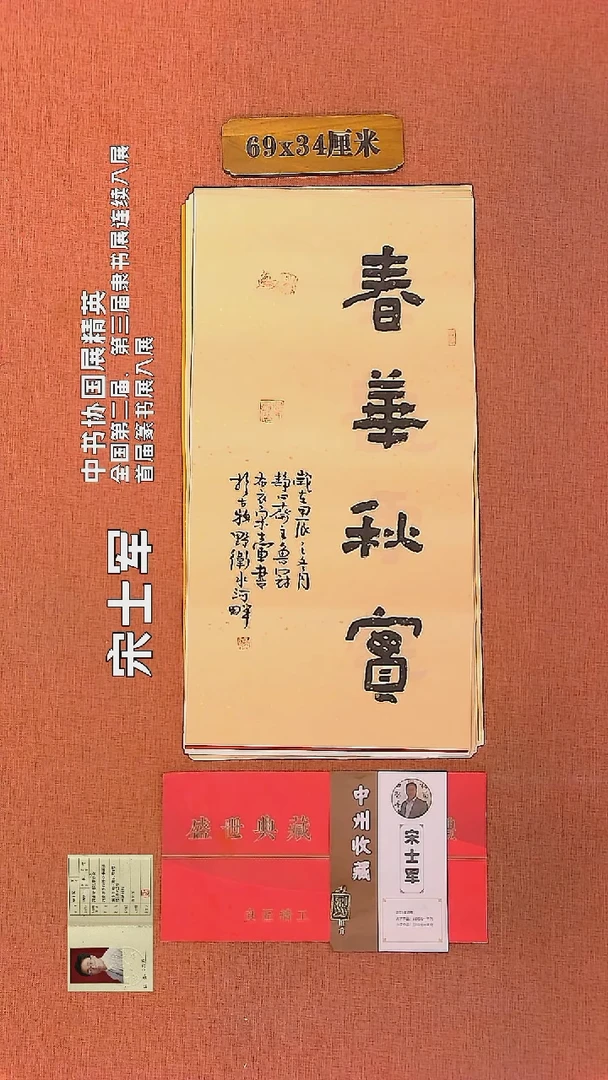 69x34厘米
春華秋實
歲在甲辰之五月
靜心齋主魯冠
布衣宋士軍書
於古牧野衛水河畔
宋士军
中书协国展精英
全国第二届、第三届隶书展连续入展
首届篆书展入展
盛世典藏
中州收藏
宋士军